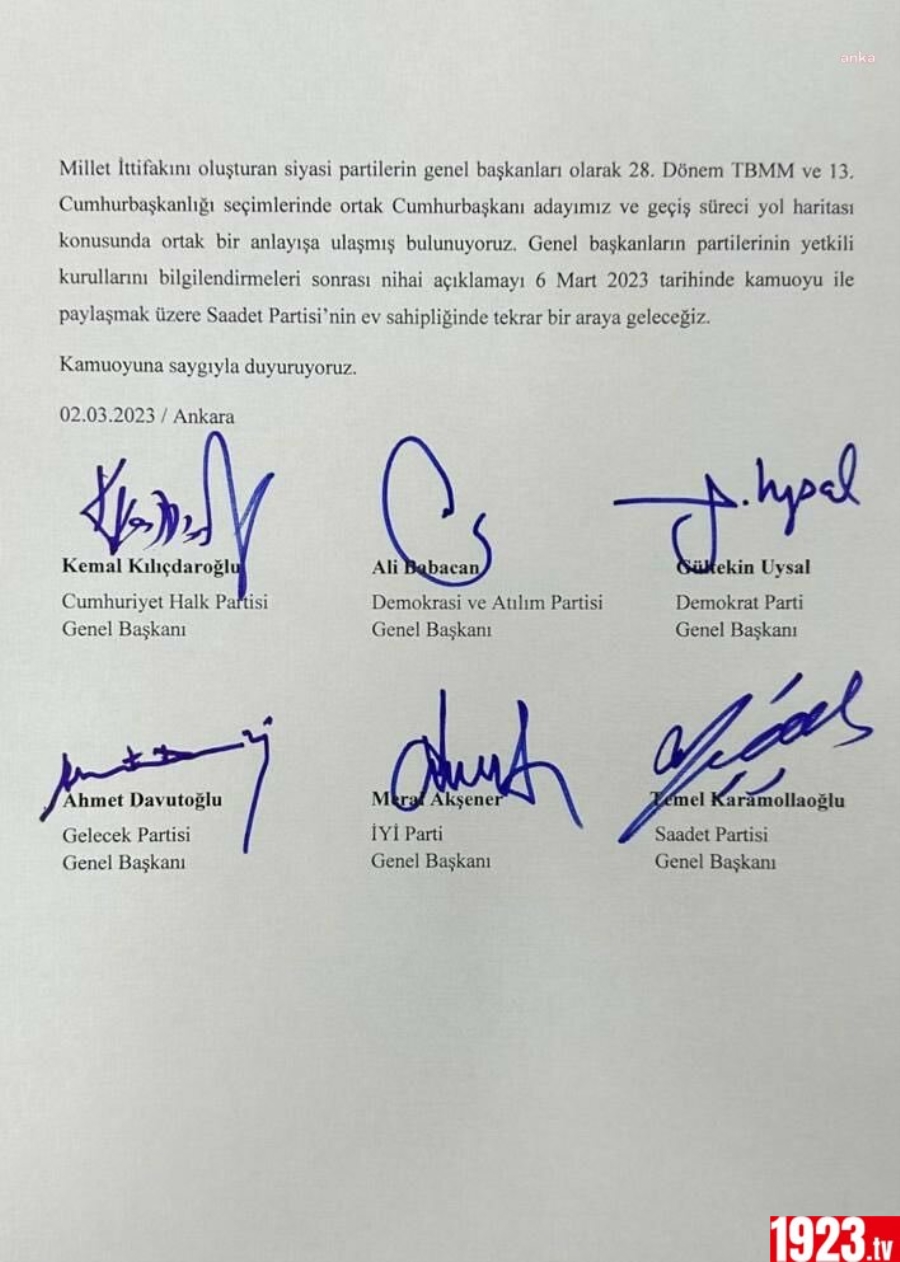 anka
Millet İttifakını oluşturan siyasi partilerin genel başkanları olarak 28. Dönem TBMM ve 13.
Cumhurbaşkanlığı seçimlerinde ortak Cumhurbaşkanı adayımız ve geçiş süreci yol haritası
konusunda ortak bir anlayışa ulaşmış bulunuyoruz. Genel başkanların partilerinin yetkili
kurullarını bilgilendirmeleri sonrası nihai açıklamayı 6 Mart 2023 tarihinde kamuoyu ile
paylaşmak üzere Saadet Partisi’nin ev sahipliğinde tekrar bir araya geleceğiz.
Kamuoyuna saygıyla duyuruyoruz.
02.03.2023 / Ankara
Kemal Kılıçdaroğlu Ali Babacan Gültekin Uysal
Cumhuriyet Halk Partisi Demokrasi ve Atılım Partisi Demokrat Parti
Genel Başkanı Genel Başkanı Genel Başkanı
Ahmet Davutoğlu Meral Akşener Temel Karamollaoğlu
Gelecek Partisi İYİ Parti Saadet Partisi
Genel Başkanı Genel Başkanı Genel Başkanı
1923.tv